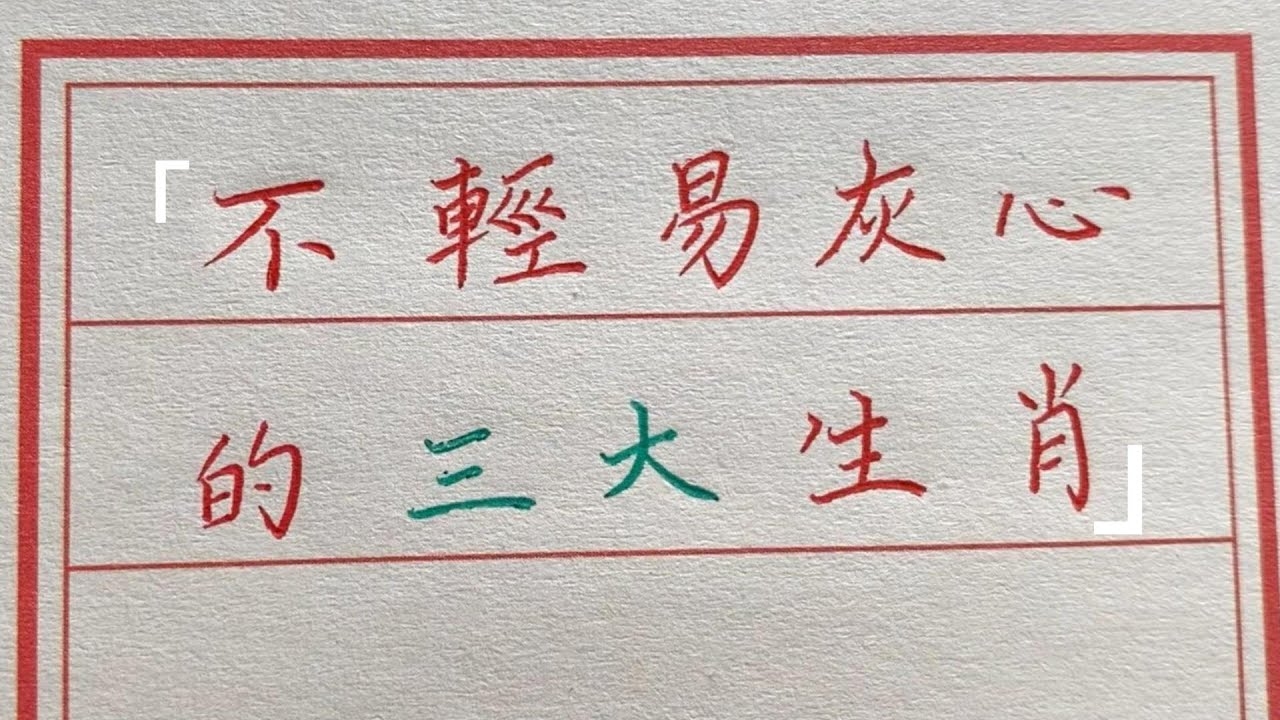 「不輕易灰心
的三大生肖」